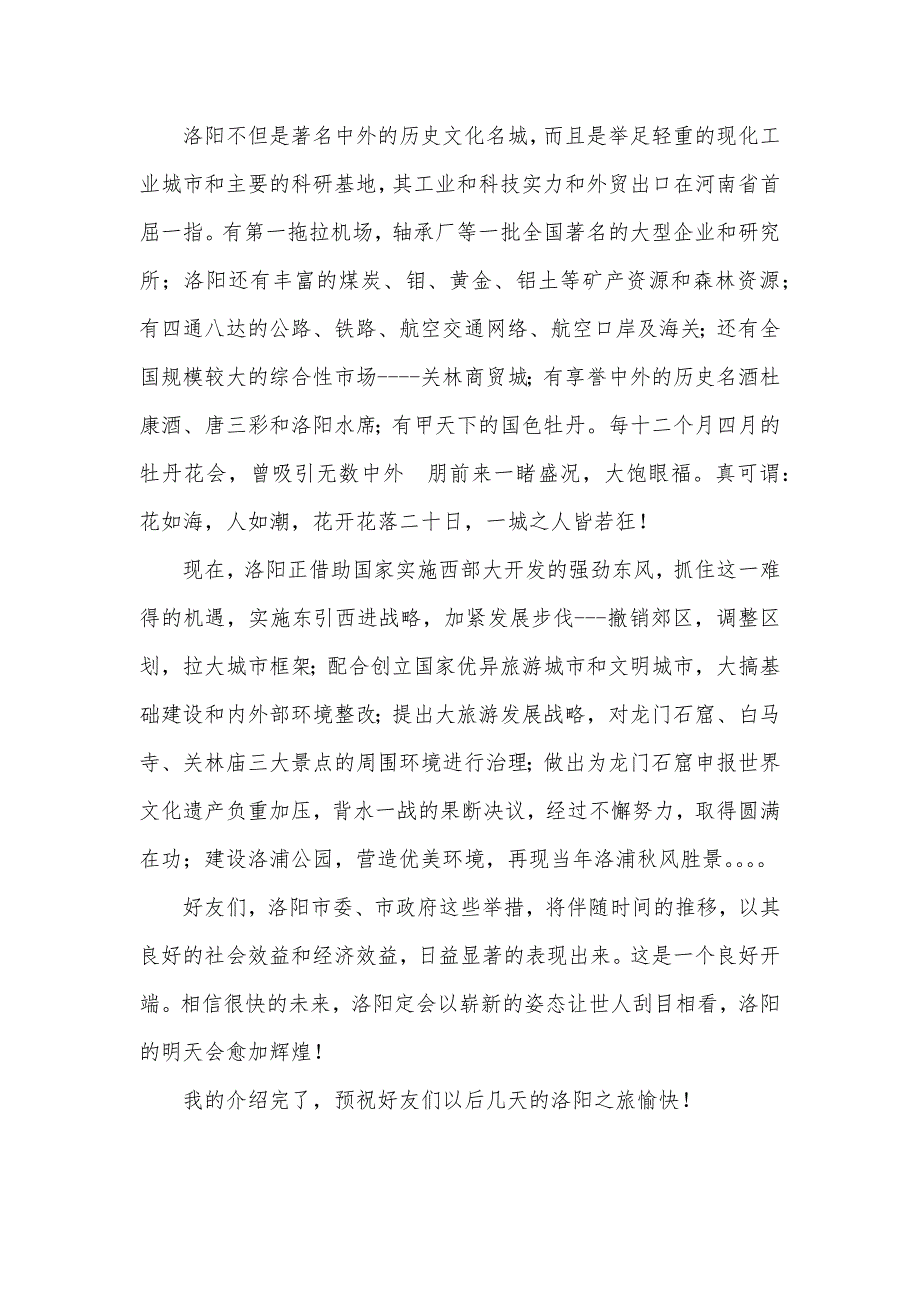 洛阳不但是著名中外的历史文化名城，而且是举足轻重的现化工
业城市和主要的科研基地，其工业和科技实力和外贸出口在河南省首
屈一指。有第一拖拉机场，轴承厂等一批全国著名的大型企业和研究
所；洛阳还有丰富的煤炭、钼、黄金、铝土等矿产资源和森林资源；
有四通八达的公路、铁路、航空交通网络、航空口岸及海关；还有全
国规模较大的综合性市场----关林商贸城；有享誉中外的历史名酒杜
康酒、唐三彩和洛阳水席；有甲天下的国色牡丹。每十二个月四月的
牡丹花会，曾吸引无数中外　朋前来一睹盛况，大饱眼福。真可谓：
花如海，人如潮，花开花落二十日，一城之人皆若狂！
现在，洛阳正借助国家实施西部大开发的强劲东风，抓住这一难
得的机遇，实施东引西进战略，加紧发展步伐---撤销郊区，调整区
划，拉大城市框架；配合创立国家优异旅游城市和文明城市，大搞基
础建设和内外部环境整改；提出大旅游发展战略，对龙门石窟、白马
寺、关林庙三大景点的周围环境进行治理；做出为龙门石窟申报世界
文化遗产负重加压，背水一战的果断决议，经过不懈努力，取得圆满
在功；建设洛浦公园，营造优美环境，再现当年洛浦秋风胜景。。。。
好友们，洛阳市委、市政府这些举措，将伴随时间的推移，以其
良好的社会效益和经济效益，日益显著的表现出来。这是一个良好开
端。相信很快的未来，洛阳定会以崭新的姿态让世人刮目相看，洛阳
的明天会愈加辉煌！
我的介绍完了，预祝好友们以后几天的洛阳之旅愉快！